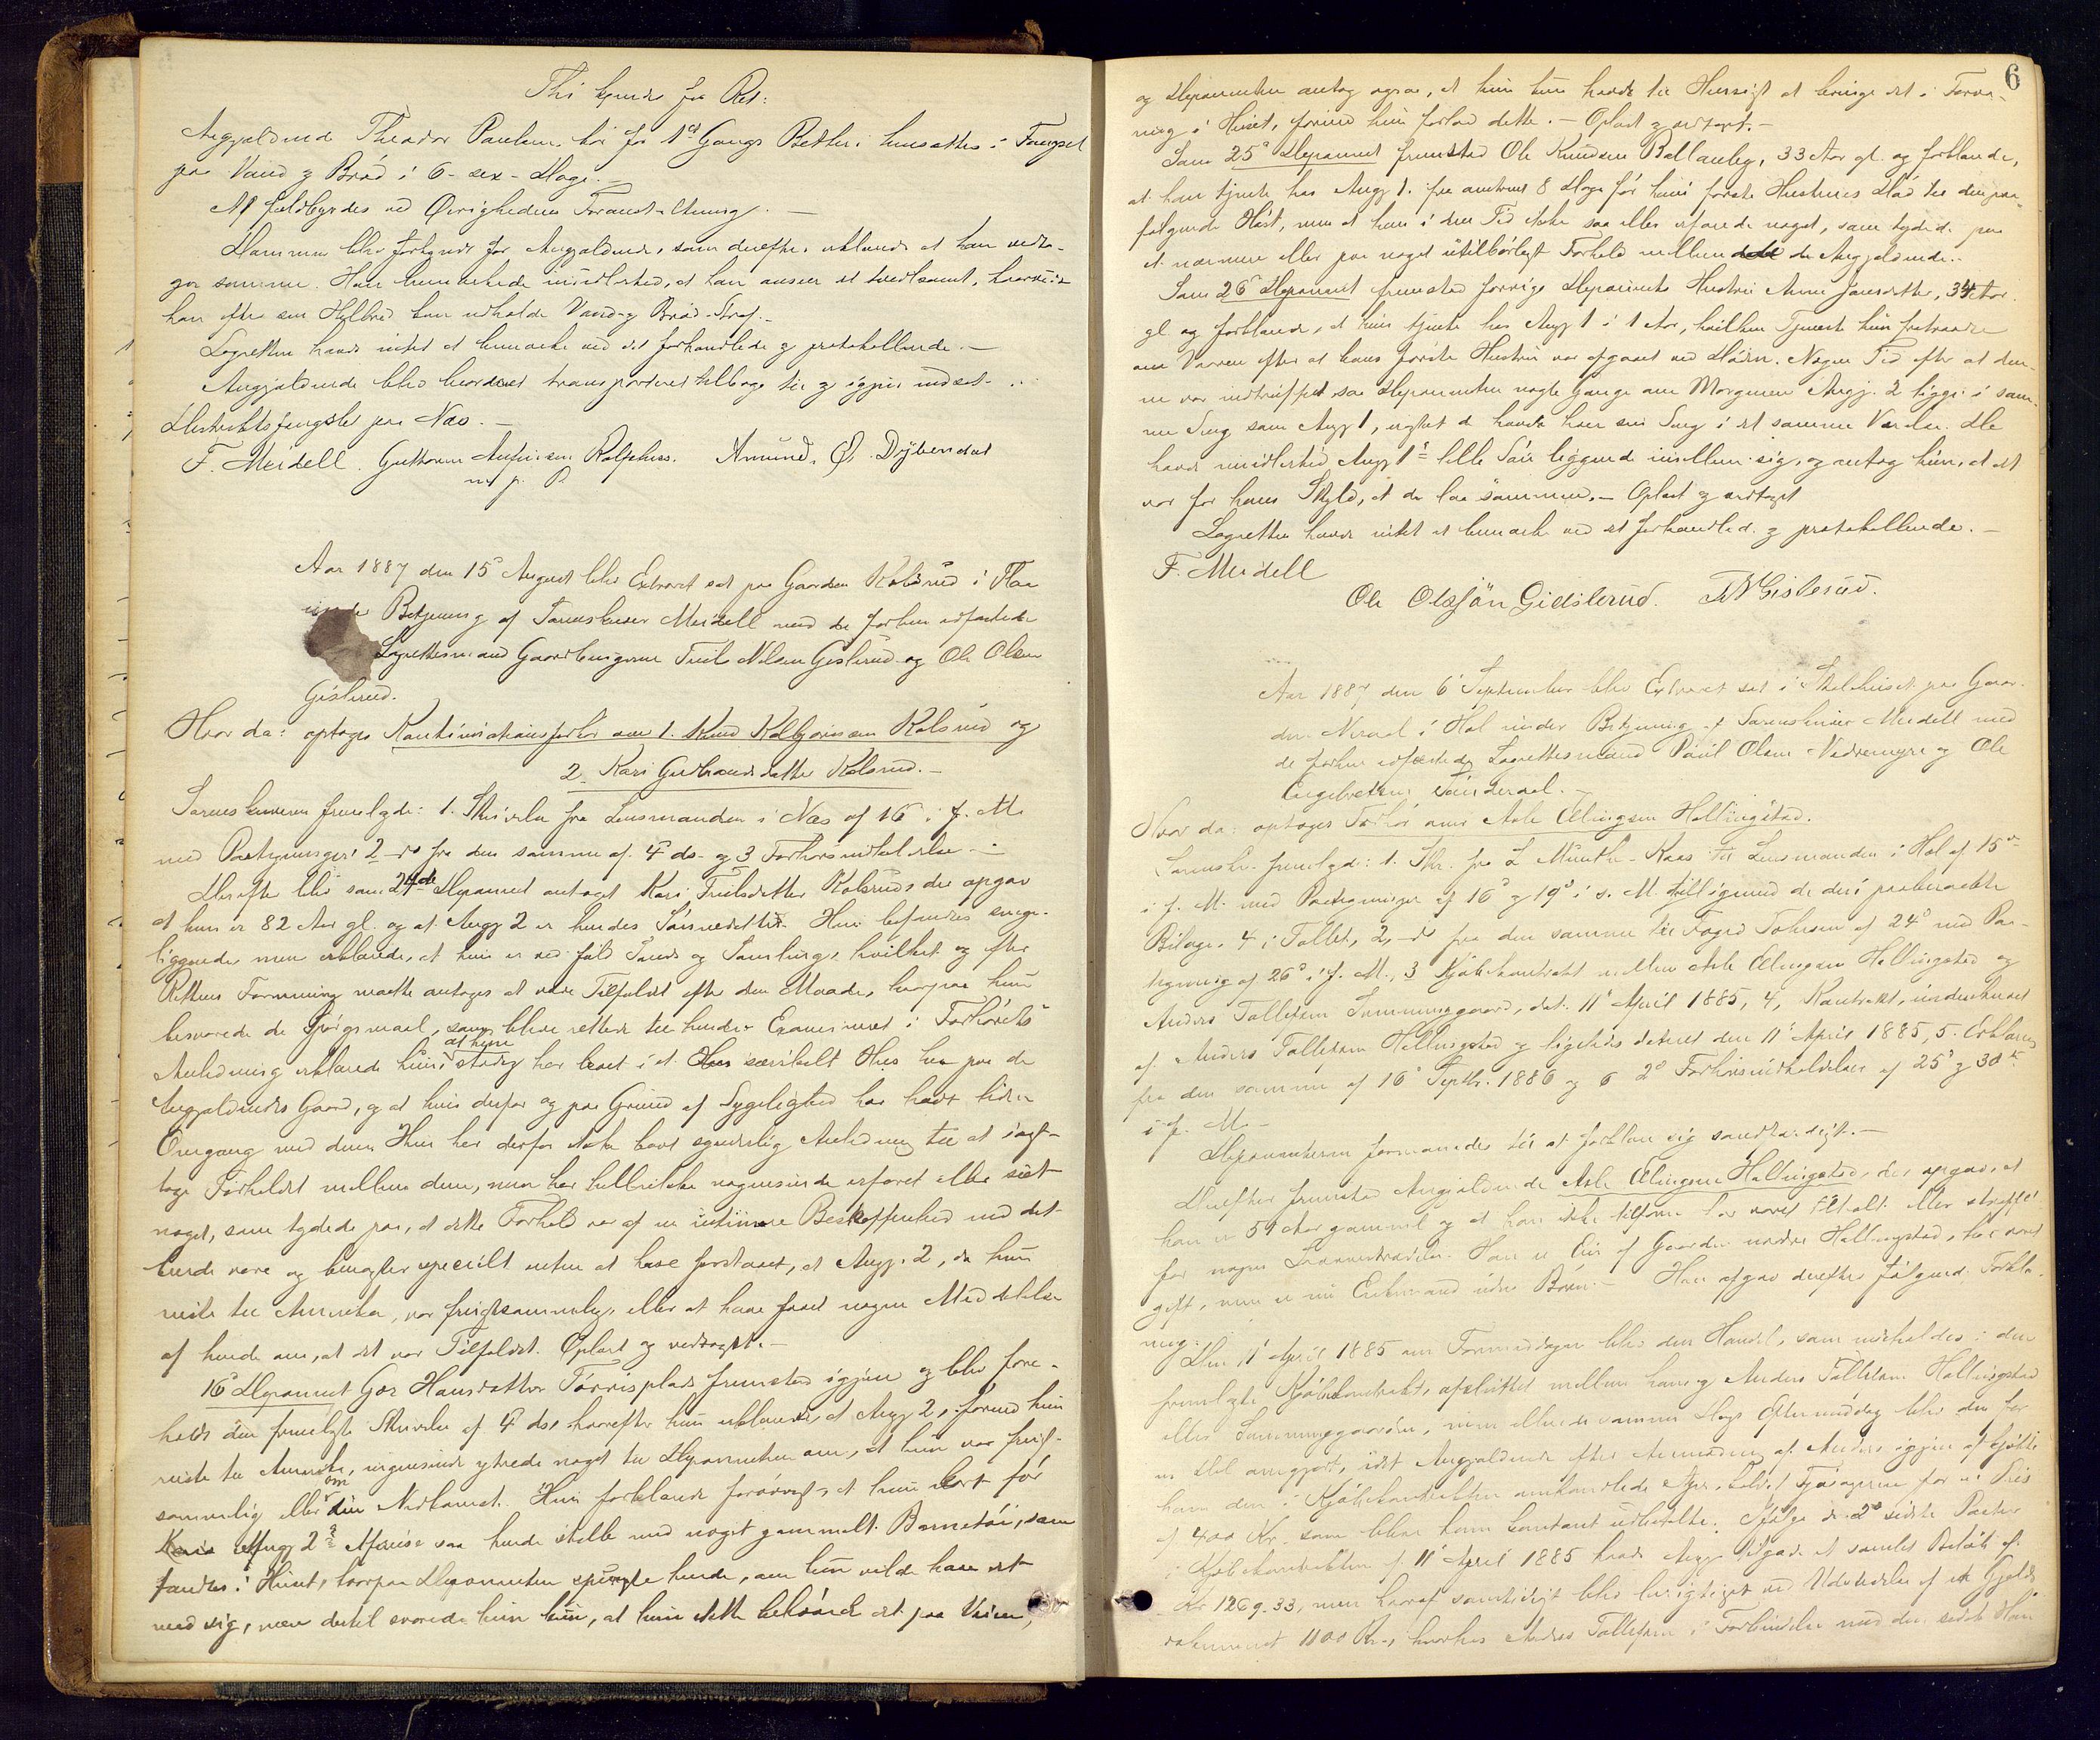 Thi kjendes for Ret:
Angjældende Theodor Paulsen bør for 1ste Gangs Betleri hensættes i Fængsel
paa Vand og Brød i 6 - sex - Dage. -
At fuldbyrdes ved Øvrighedens Foranstaltning. -
Dommen blev forkyndt for Angjældende, som derefter erklærede at han vedto-
ger samme. Han bemærkede imidlertid, at han anseer det tvivlsomt, hvorvidt
han efter sin Helbred kan udholde Vand og Brød Straf. -
Lagretten havde intet at bemærke ved det forhandlede og protokollerede. -
Angjældende blev beordret transporteret tilbage til og igjen indsat i
Distriktsfængslet paa Næs. -
F. Meidell. Guttorm Anfinsen Rolfshus. Amund. Ø. Dybendal
m p. P.
Aar 1887 den 15de August blev Extraret sat paa Gaarden Kolsrud i Flaa
under Betjening af Sorenskriver Meidell med de forhen edfæstede
Lagrettesmænd Gaardbrugerne Truls Nilsen Gislerud og Ole Olsen
Gislerud.
Hvor da: optoges Kontinuationsforhør over 1. Knud Kolbjørnsen Kolsrud og
2. Kari Gulbrandsdatter Kolsrud. -
Sorenskriveren fremlagde: 1. Skrivelse fra Lensmanden i Næs af 16 i f. M.
med Paategninger 2 - ds fra den samme af 4de ds. og 3 Forhørsindkaldelse -
Derefter blev som 24de Deponent antaget Kari Trulsdatter Kolsrud, der opgav
at hun er 82 Aar gl. og at Angj 2 er hendes Sønnedatter. Hun befandtes senge-
liggende men erklærede, at hun er ved fuld Sands og Samling, hvilket og efter
Rettens Formening maatte antages at være Tilfældet efter den Maade, hvorpaa hun
besvarede de Spørgsmaal, som bleve rettede til hende. Examineret i Forhørets
Anledning erklærede hun, at hun stadig har boet i et Hus særskilt Hus her paa de
Angjældendes Gaard, og at hun derfor og paa Grund af Sygelighed har havt liden
Omgang med dem. Hun har derfor ikke havt synderlig Anledning til at iagt-
tage Forholdet mellem dem, men har hellerikke nogensinde erfaret eller seet
noget, som tydede paa, at dette Forhold var af en intimere Beskaffenhed end det
burde være og benægter specielt enten at have forstaaet, at Angj. 2, da hun
reiste til Amerika, var frugtsommelig, eller at have faaet nogen Meddelelse
af hende om, at det var Tilfældet. Oplæst og vedtaget. -
16de Deponent Gro Hansdatter Torrisplads fremstod igjen og blev fore-
holdt den fremlagte Skrivelse af 4de ds, hvorefter hun erklærede, at Angj 2, forend hun
reiste til Amerika, ingensinde ytrede noget til Deponenten om, at hun var frugt-
sommelig eller om sin Nedkomst. Hun forklarede forøvrigt, at hun kort før
Angj 2s Afreise saa hende stelle med noget gammelt Barnetøi, som
fandtes i Huset, hvorpaa Deponenten spurgte hende, om hun vilde have det
med sig, men dertil svarede hun, at hun ikke behøvede det paa Veien,
6
og Deponenten antog ogsaa, at hun kun havde til Hensigt at bringe det i Forva-
ring i Huset, forinden hun forlod dette. - Oplæst og vedtaget. -
Som 25de Deponent fremstod Ole Knudsen Ballanby, 33 Aar gl. og forklarede,
at han tjente hos Angj 1. fra omtrent 8 Dage før hans første Hustrues Død til den paa-
følgende Høst, men at han i den Tid ikke saa eller erfarede noget, som tydede paa
et nærmere eller paa noget utilbørligt Forhold mellem de Angjældende. -
Som 26de Deponent fremstod forrige Deponents Hustru Anne Jonsdatter, 34 Aar
gl. og forklarede, at hun tjente hos Angj 1 i 1 Aar, hvilken Tjeneste hun fratraadte
om Vaaren efter at hans første Hustru var afgaaet ved Døden. Nogen Tid efter at den-
ne var indtruffet, saa Deponenten nogle Gange om Morgenen Angj. 2 ligge i sam-
me Seng som Angj 1, uagtet de havde hver sin Seng i det samme Værelse. De
havde imidlertid Angj 1s lille Søn liggende imellem sig, og antog hun, at det
var for hans Skyld, at de laa sammen. - Oplæst og vedtaget
Lagretten havde intet at bemærke ved det forhandlede og protokollerede. -
F. Meidell
Ole Olssøn Gielslerud. T N Gislerud.
Aar 1887 den 6te September blev Extraret sat i Skolehuset paa Gaar-
den Neraal i Hol under Betjening af Sorenskriver Meidell med
de forhen edfæstede Lagrettesmænd Paul Olsen Nedremyre og Ole
Engebretsen Sunderaal. -
Hvor da: optoges Forhør over Asle Ellingsen Hallingstad.
Sorenskr. fremlagde: 1. Skr. fra L. Munthe-Kaas til Lensmanden i Hol af 15de
i f. M. med Paategninger af 16de og 19de i s. M. tilligemed de deri paaberaabte
Bilage, 4 i Tallet, 2, - ds fra den samme til Foged Johnsen af 24de med Paa-
tegning af 26de i f. M., 3 Kjøbekontrakt mellem Asle Ellingsen Hallingstad og
Anders Tollefsen Sammenggaard, dat. 11te April 1885, 4, Kontrakt, underskrevet
af Anders Tollefsen Hallingstad og ligeledes dateret den 11te April 1885, 5. Erklæring
fra den samme af 16de Septbr. 1886 og 6 2de Forhørsindkaldelser af 25de og 30te
i f. M. -
Deponenterne formanedes til at forklare sig sandfærdigt. -
Derefter fremstod Angjældende Asle Ellingsen Hallingstad, der opgav, at
han er 59 Aar gammel og at han ikke tilforn har været tiltalt eller straffet
for nogen Lovovertrædelse. Han er Eier af Gaarden nedre Hallingstad, har været
gift, men er nu Enkemand uden Børn. - Han afgav derefter følgende Forkla-
ring:
Den 11te April 1885 om Formiddagen blev den Handel, som indeholdes i den
fremlagte Kjøbekontrakt, afsluttet mellem ham og Anders Tollefsen Hallingstad
eller Sammenggaarden, men allerede samme Dags Eftermiddag blev den for
en Del omgjort, idet Angjældende efter Anmodning af Anders igjen afkjøbte
ham den i Kjøbekontrakten omhandlede
af 400 Kr. som bleve ham kontant udbetalte. Ifølge de 2de sidste Poster
i Kjøbekontrakten af 11te April 1885 havde Angj tilgode et samlet Beløb af
Kr 1269.33, men heraf samtidigt blev berigtiget ved Udstedelse af et Gjelds-
dokument 1100 Kr., hvorhos Anders Tollefsen i Forbindelse med den sidste Han